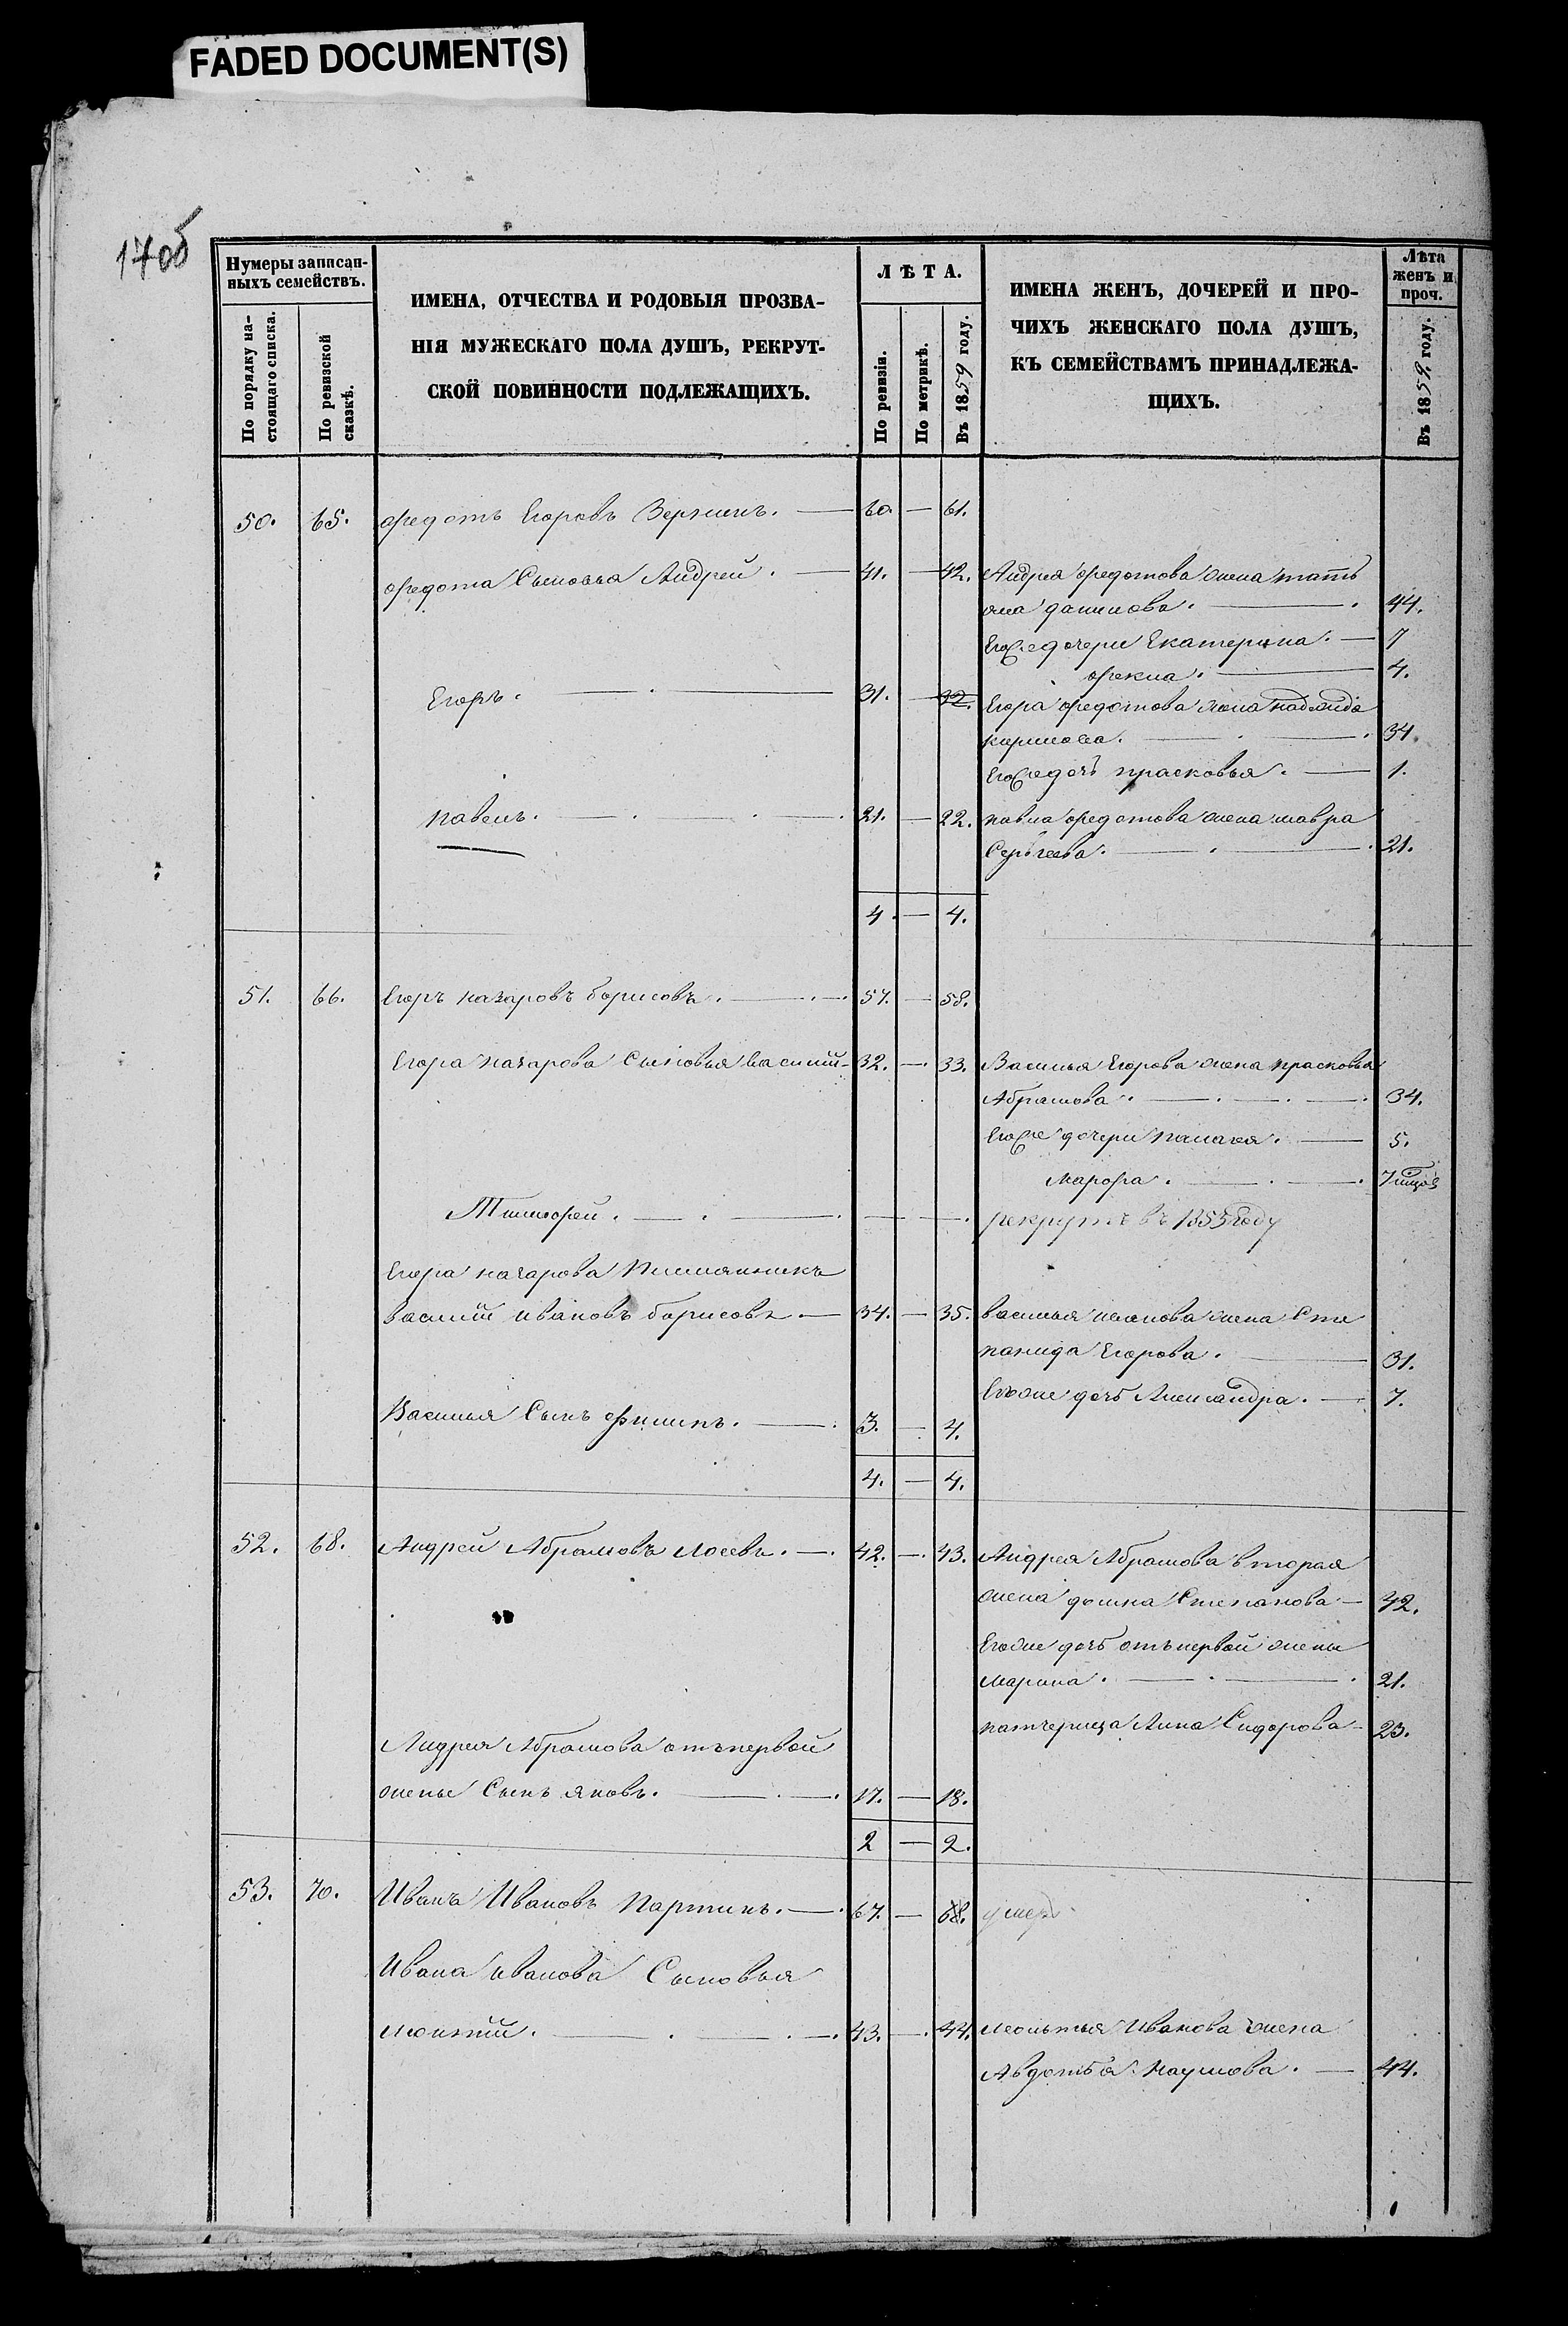 FADED DOCUMENT(S)
17об
Нумеры записан-
ныхъ семействъ.
По порядку на-
стоящаго списка.
По ревизской
сказкѣ.
ИМЕНА, ОТЧЕСТВА И РОДОВЫЯ ПРОЗВА-
НІЯ МУЖЕСКАГО ПОЛА ДУШЪ, РЕКРУТ-
СКОЙ ПОВИННОСТИ ПОДЛЕЖАЩИХЪ.
ЛѢТА.
По ревизіи.
По метрикѣ.
Въ 1859 году.
ИМЕНА ЖЕНЪ, ДОЧЕРЕЙ И ПРО-
ЧИХЪ ЖЕНСКАГО ПОЛА ДУШЪ,
КЪ СЕМЕЙСТВАМЪ ПРИНАДЛЕЖА-
ЩИХЪ.
Лѣта
женъ и
проч.
Въ 1859 году.
50. 65. Федотъ Егоровъ — 60 — 61.
Федота Сыновья Андрей. — 41. — 42. Андрея Федотова жена тать
яна данилова. — 44.
Егоже дочери Екатерина. — 7
Фекла. — 4.
Егоръ. — 31. — 32. Егора Федотова жена
кирилова. — 34.
Егоже дочь прасковья. — 1.
павелъ. — 21. — 22. павла Федотова жена мавра
Сергѣева. — 21.
4. — 4.
51. 66. Егоръ назаровъ борисовъ. — 57. — 58.
Егора назарова Сыновья василій — 32. — 33. Василья Егорова жена прасковья
Абрамова. — 34.
Егоже дочери палагея. — 5.
марфа. — 7
Тимофей. — рекрутъ въ 1853 году
Егора назарова племянникъ
василій ивановъ борисовъ. — 34. — 35. василья иванова жена Сте
панида Егорова. — 31.
Егоже дочь Александра. — 7.
Василья Сынъ Филипъ. — 3. — 4.
4. — 4.
52. 68. Андрей Абрамовъ лосевъ. — 42. — 43. Андрея Абрамова вторая
жена домна Степанова — 42.
Егоже дочь отъ первой жены
марина. — 21.
патчерица Анна Сидорова — 23.
Андрея Абрамова отъ первой
жены Сынъ яковъ. — 17. — 18.
2 — 2.
53. 70. Иванъ Ивановъ Паршинъ. — 67. — 68. умеръ
Ивана иванова Сыновья
леонтій. — 43. — 44. леонтья Иванова жена
Авдотья наумова. — 44.